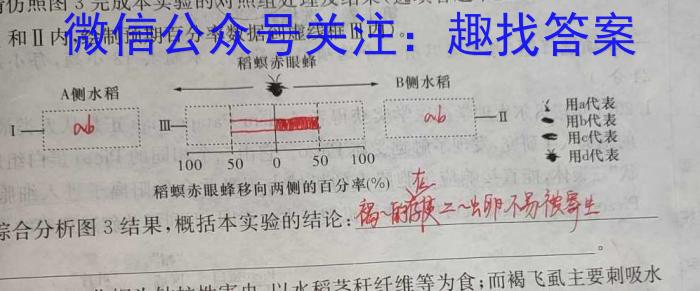 仿照图3完成本实验的对照组处理及结果
和Ⅱ内,绘制预期百分率数据到虚线框Ⅲ内)。
微信公众号关注:趣找答案
稻螟赤眼蜂
A侧水稻
B侧水稻
Ⅰ ab Ⅲ ab Ⅱ
用a代表
用b代表
用c代表
用d代表
100 50 0 50 100
稻螟赤眼蜂移向两侧的百分率(%)
综合分析图3结果,概括本实验的结论:
出卵不易被寄生
。
以水稻茎秆纤维等为食;而褐飞虱主要刺吸水